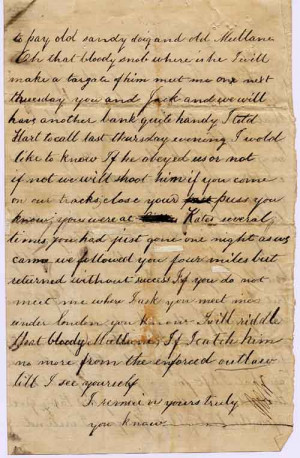 to pay old sandy doig and old Mullane
Oh that bloody snob where is he I will
make a targate of him meet me on next
thursday you and Jack and we will
have another bank quite handy I told
Hart to call last thursday evening I wold
like to know If he obeyed us or not
if not we will shoot him if you come
on our tracks close your puss you
know, you were at Kates several
times you had just gone one night as we
came we followed you four miles but
returned without success If you do not
meet me where I ask you meet me
under London you know I will riddle
that bloody If I catch him
no more from the enforced outlaw
till I see yourself
I remain yours truly
you know